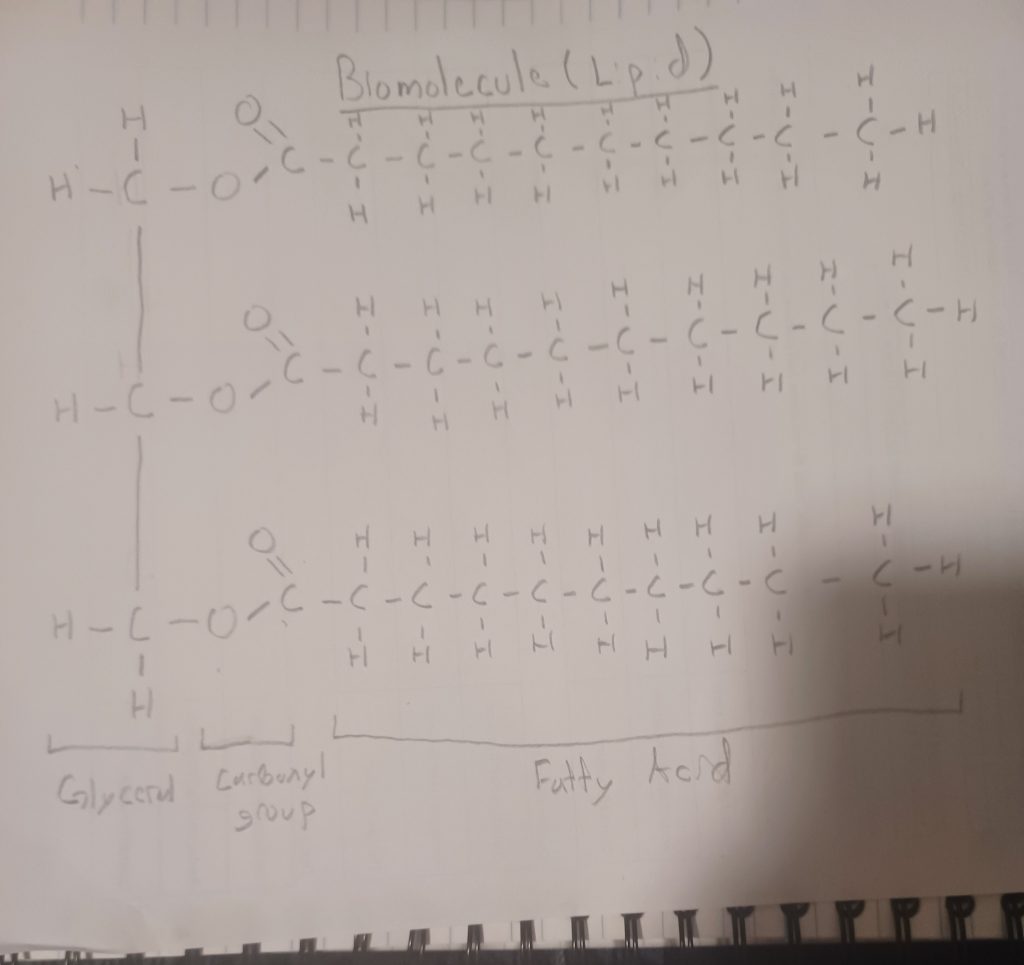 Biomolecule (Lipid)
H O H H H H H H H H H
H - C - O - C - C - C - C - C - C - C - C - C - C - H
H H H H H H H H H
O H H H H H H H H H
H - C - O - C - C - C - C - C - C - C - C - C - C - H
H H H H H H H H H
O H H H H H H H H H
H - C - O - C - C - C - C - C - C - C - C - C - C - H
H H H H H H H H H H
Glycerol Carbonyl group Fatty Acid